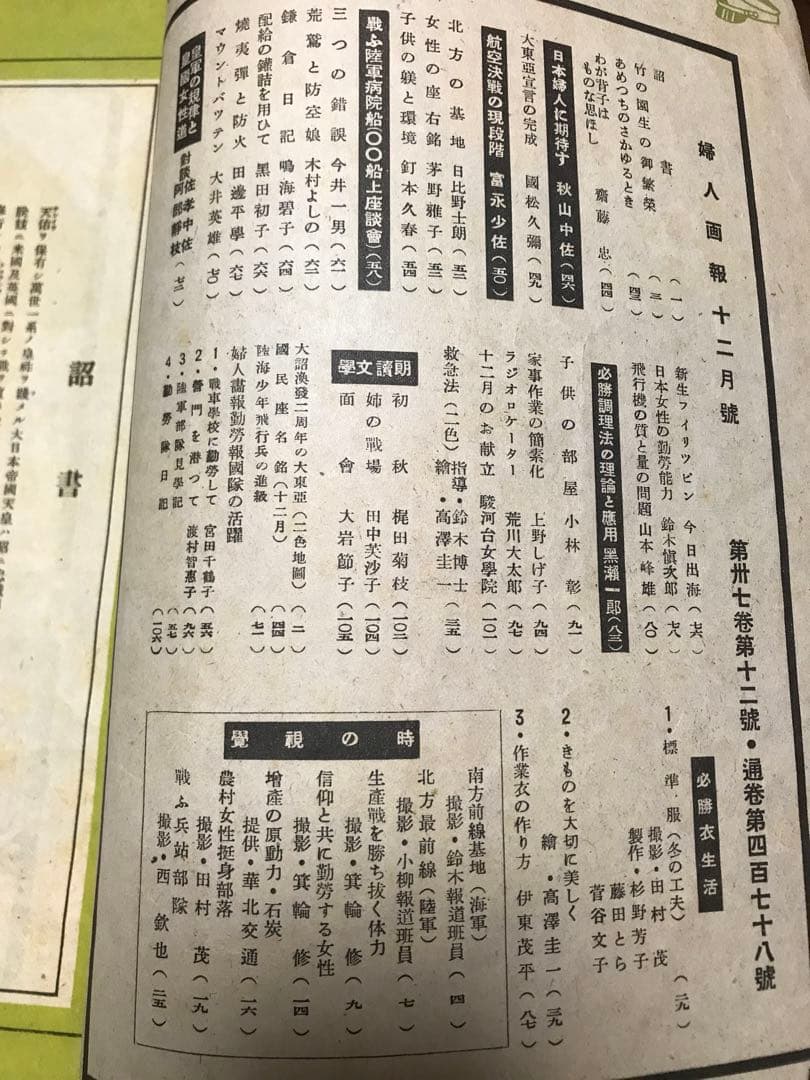 婦人画報十二月號
第卅七卷第十二號・通卷第四百七十八號
詔書（一）
竹の園生の御繁榮（三）
あめつちのさかゆるとき（四三）
わが背子は
ものな思ほし
齋藤忠（四四）
日本婦人に期待す 秋山中佐（四六）
大東亞宣言の完成 國松久彌（四九）
航空決戰の現段階 富永少佐（五〇）
北方の基地 日比野士朗（五二）
女性の座右銘 茅野雅子（五三）
子供の躾と環境 釘本久春（五四）
戰ふ陸軍病院船（〇〇船上座談會）（五八）
三つの錯誤 今井一男（六一）
荒鷲と防空娘 木村よしの（六二）
鎌倉日記 鳴海碧子（六四）
配給の罐詰を用ひて 黑田初子（六六）
燒夷彈と防火 田邊平學（六七）
マウントバッテン 大井英雄（七〇）
皇軍の規律と
皇國女性道
對談 佐孝中佐
阿部靜枝（七二）
新生フイリツピン 今日出海（七六）
日本女性の勤勞能力 鈴木愼次郎（七八）
飛行機の質と量の問題 山本峰雄（八〇）
必勝調理法の理論と應用 黑瀬一郎（八三）
子供の部屋 小林彰（九一）
家事作業の簡素化 上野しげ子（九四）
ラジオロケーター 荒川大太郎（九七）
十二月のお献立 駿河台女學院（一〇一）
救急法（二色）
指導・鈴木博士
繪・高澤圭一（三五）
朗讀文學
初秋 梶田菊枝（一〇二）
姉の戰場 田中芙沙子（一〇四）
面會 大岩節子（一〇五）
大詔渙發二周年の大東亞（二色地圖）（二）
國民座右銘（十二月）（四四）
陸海少年飛行兵の進級（七一）
婦人畫報勤勞報國隊の活躍
1・戰車學校に勤勞して 宮田千鶴子（五六）
2・營門を潜つて 渡村智惠子（九六）
3・陸軍部隊見學記（五七）
4・勤勞隊日記（一〇六）
必勝衣生活
1・標準服（冬の工夫）（二九）
撮影・田村茂
製作・杉野芳子
藤田とら
菅谷文子
2・きものを大切に美しく
繪・高澤圭一（三九）
3・作業衣の作り方 伊東茂平（八七）
時の視覺
南方前線基地（海軍）
撮影・鈴木報道班員（四）
北方最前線（陸軍）
撮影・小柳報道班員（七）
生産戰を勝ち拔く体力
撮影・箕輪修（九）
信仰と共に勤勞する女性
撮影・箕輪修（一四）
增産の原動力・石炭
提供・華北交通（一六）
農村女性挺身部落
撮影・田村茂（一九）
戰ふ兵站部隊
撮影・西欽也（二五）
詔書
天佑ヲ保有シ萬世一系ノ皇祚ヲ踐メル大日本帝國天皇ハ昭